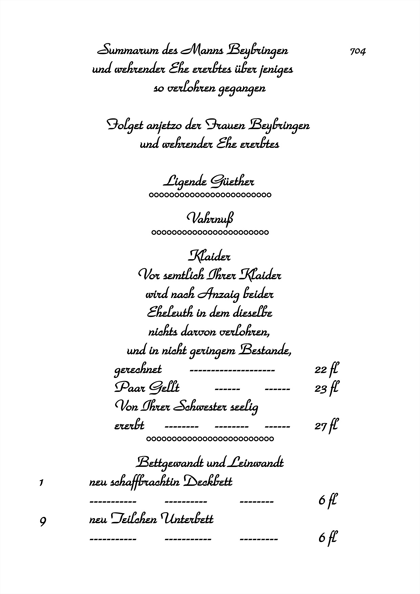 Summarum des Manns Beybringen 704
und wehrender Ehe ererbtes über jeniges
so verlohren gegangen
Folget anjetzo der Frauen Beybringen
und wehrender Ehe ererbtes
Ligende Güether
Vahrnuß
Klaider
Vor semtlich Ihrer Klaider
wird nach Anzaig beider
Eheleuth in dem dieselbe
nichts darvon verlohren,
und in nicht geringem Bestande,
gerechnet -------------------- 22 fl
Paar Gellt ------ ------ 23 fl
Von Ihrer Schwester seelig
ererbt -------- -------- ------ 27 fl
Bettgewandt und Leinwandt
1 neu schaffbrachtin Deckbett
----------- ---------- -------- 6 fl
9 neu Teilchen Unterbett
----------- ----------- --------- 6 fl